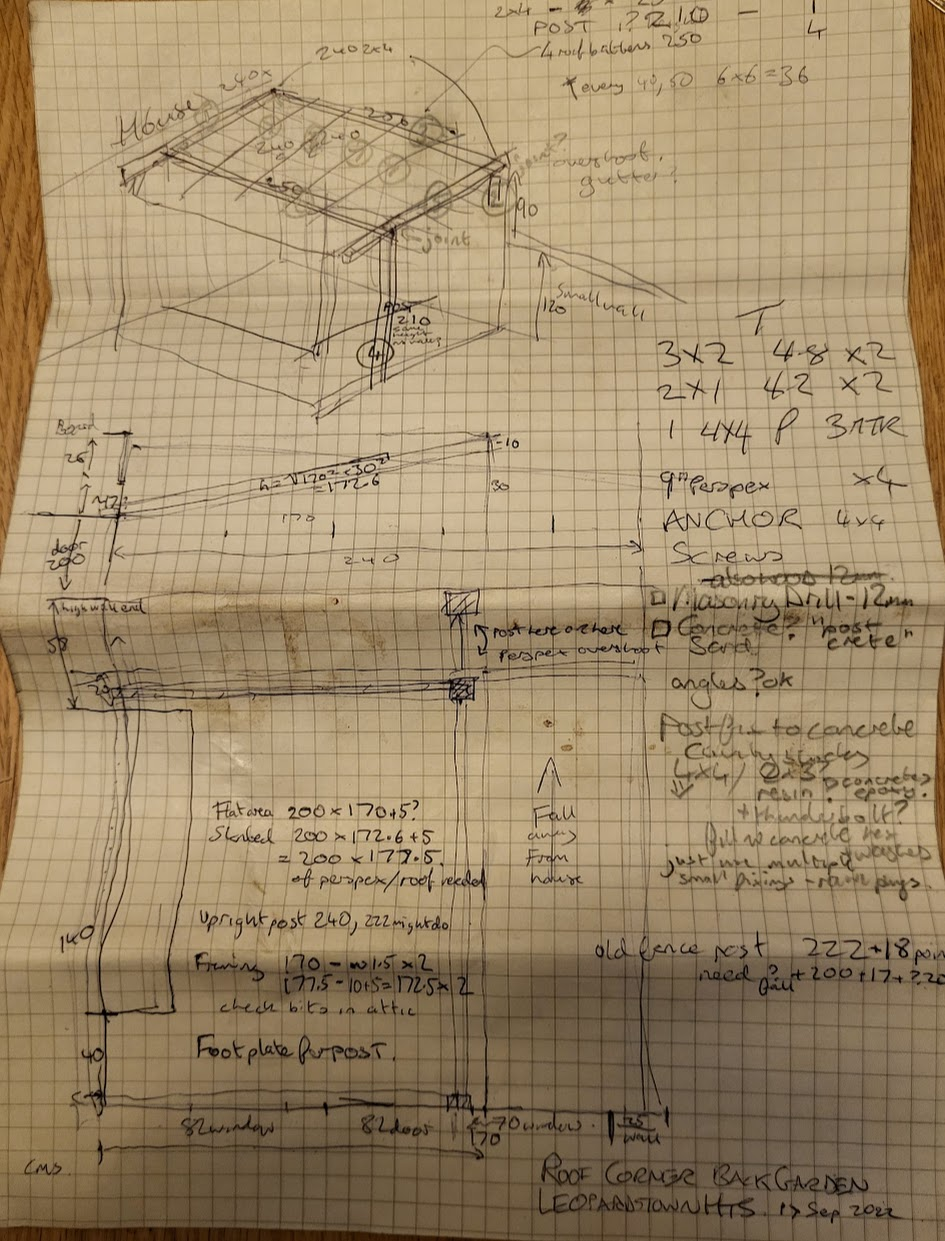 2x4 -
POST ? 210 - 1
4
4 roof battens 250
*every 40,50 6x6=36
240 2x4
240x
House
200
240
240
250
overshoot.
gutter?
90
joint
Small wall
120
POST
210
4
T
3x2 4.8 x2
2x1 4.2 x2
1 4x4 P 3MTR
9" Perspex x4
ANCHOR 4x4
Screws
Masonry Drill - 12mm
Concrete? "post
Sand. crete"
angles? ok
Post fix to concrete
4x4/ 2x3?
resin? epoxy.
+ thunderbolt?
just use multiple
small fixings - rawl plugs.
26
h = √170²+30²
= 172.6
10
30
170
door
200
240
high wall end
58
20
post here or here
Perspex overshoot
Flat area 200 x 170+5?
Slanted 200 x 172.6+5
= 200 x 177.5.
of perspex/roof needed
Fall
away
From
house
Upright post 240, 222 might do
140
Framing 170 - 1.5 x 2
177.5 - 10+5 = 172.5 x 2
check bits in attic
old fence post 222+18
need +200+17+?
40
Footplate for post.
82 window 82 door 70 window. 25
wall
170
cms.
ROOF CORNER BACK GARDEN
LEOPARDSTOWN HTS. 17 Sep 2022